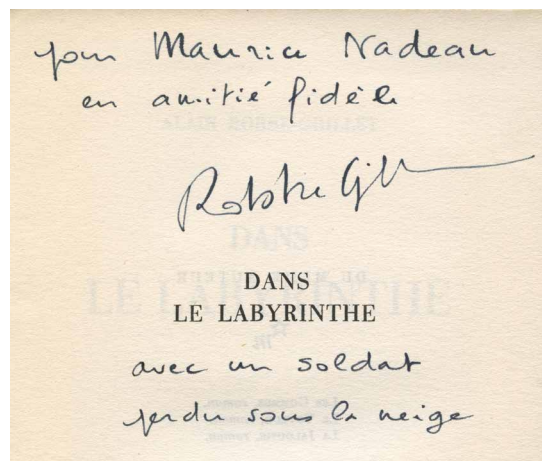 pour Maurice Nadeau
en amitié fidèle
Robbe-Grillet
DANS
LE LABYRINTHE
avec un soldat
perdu sous la neige